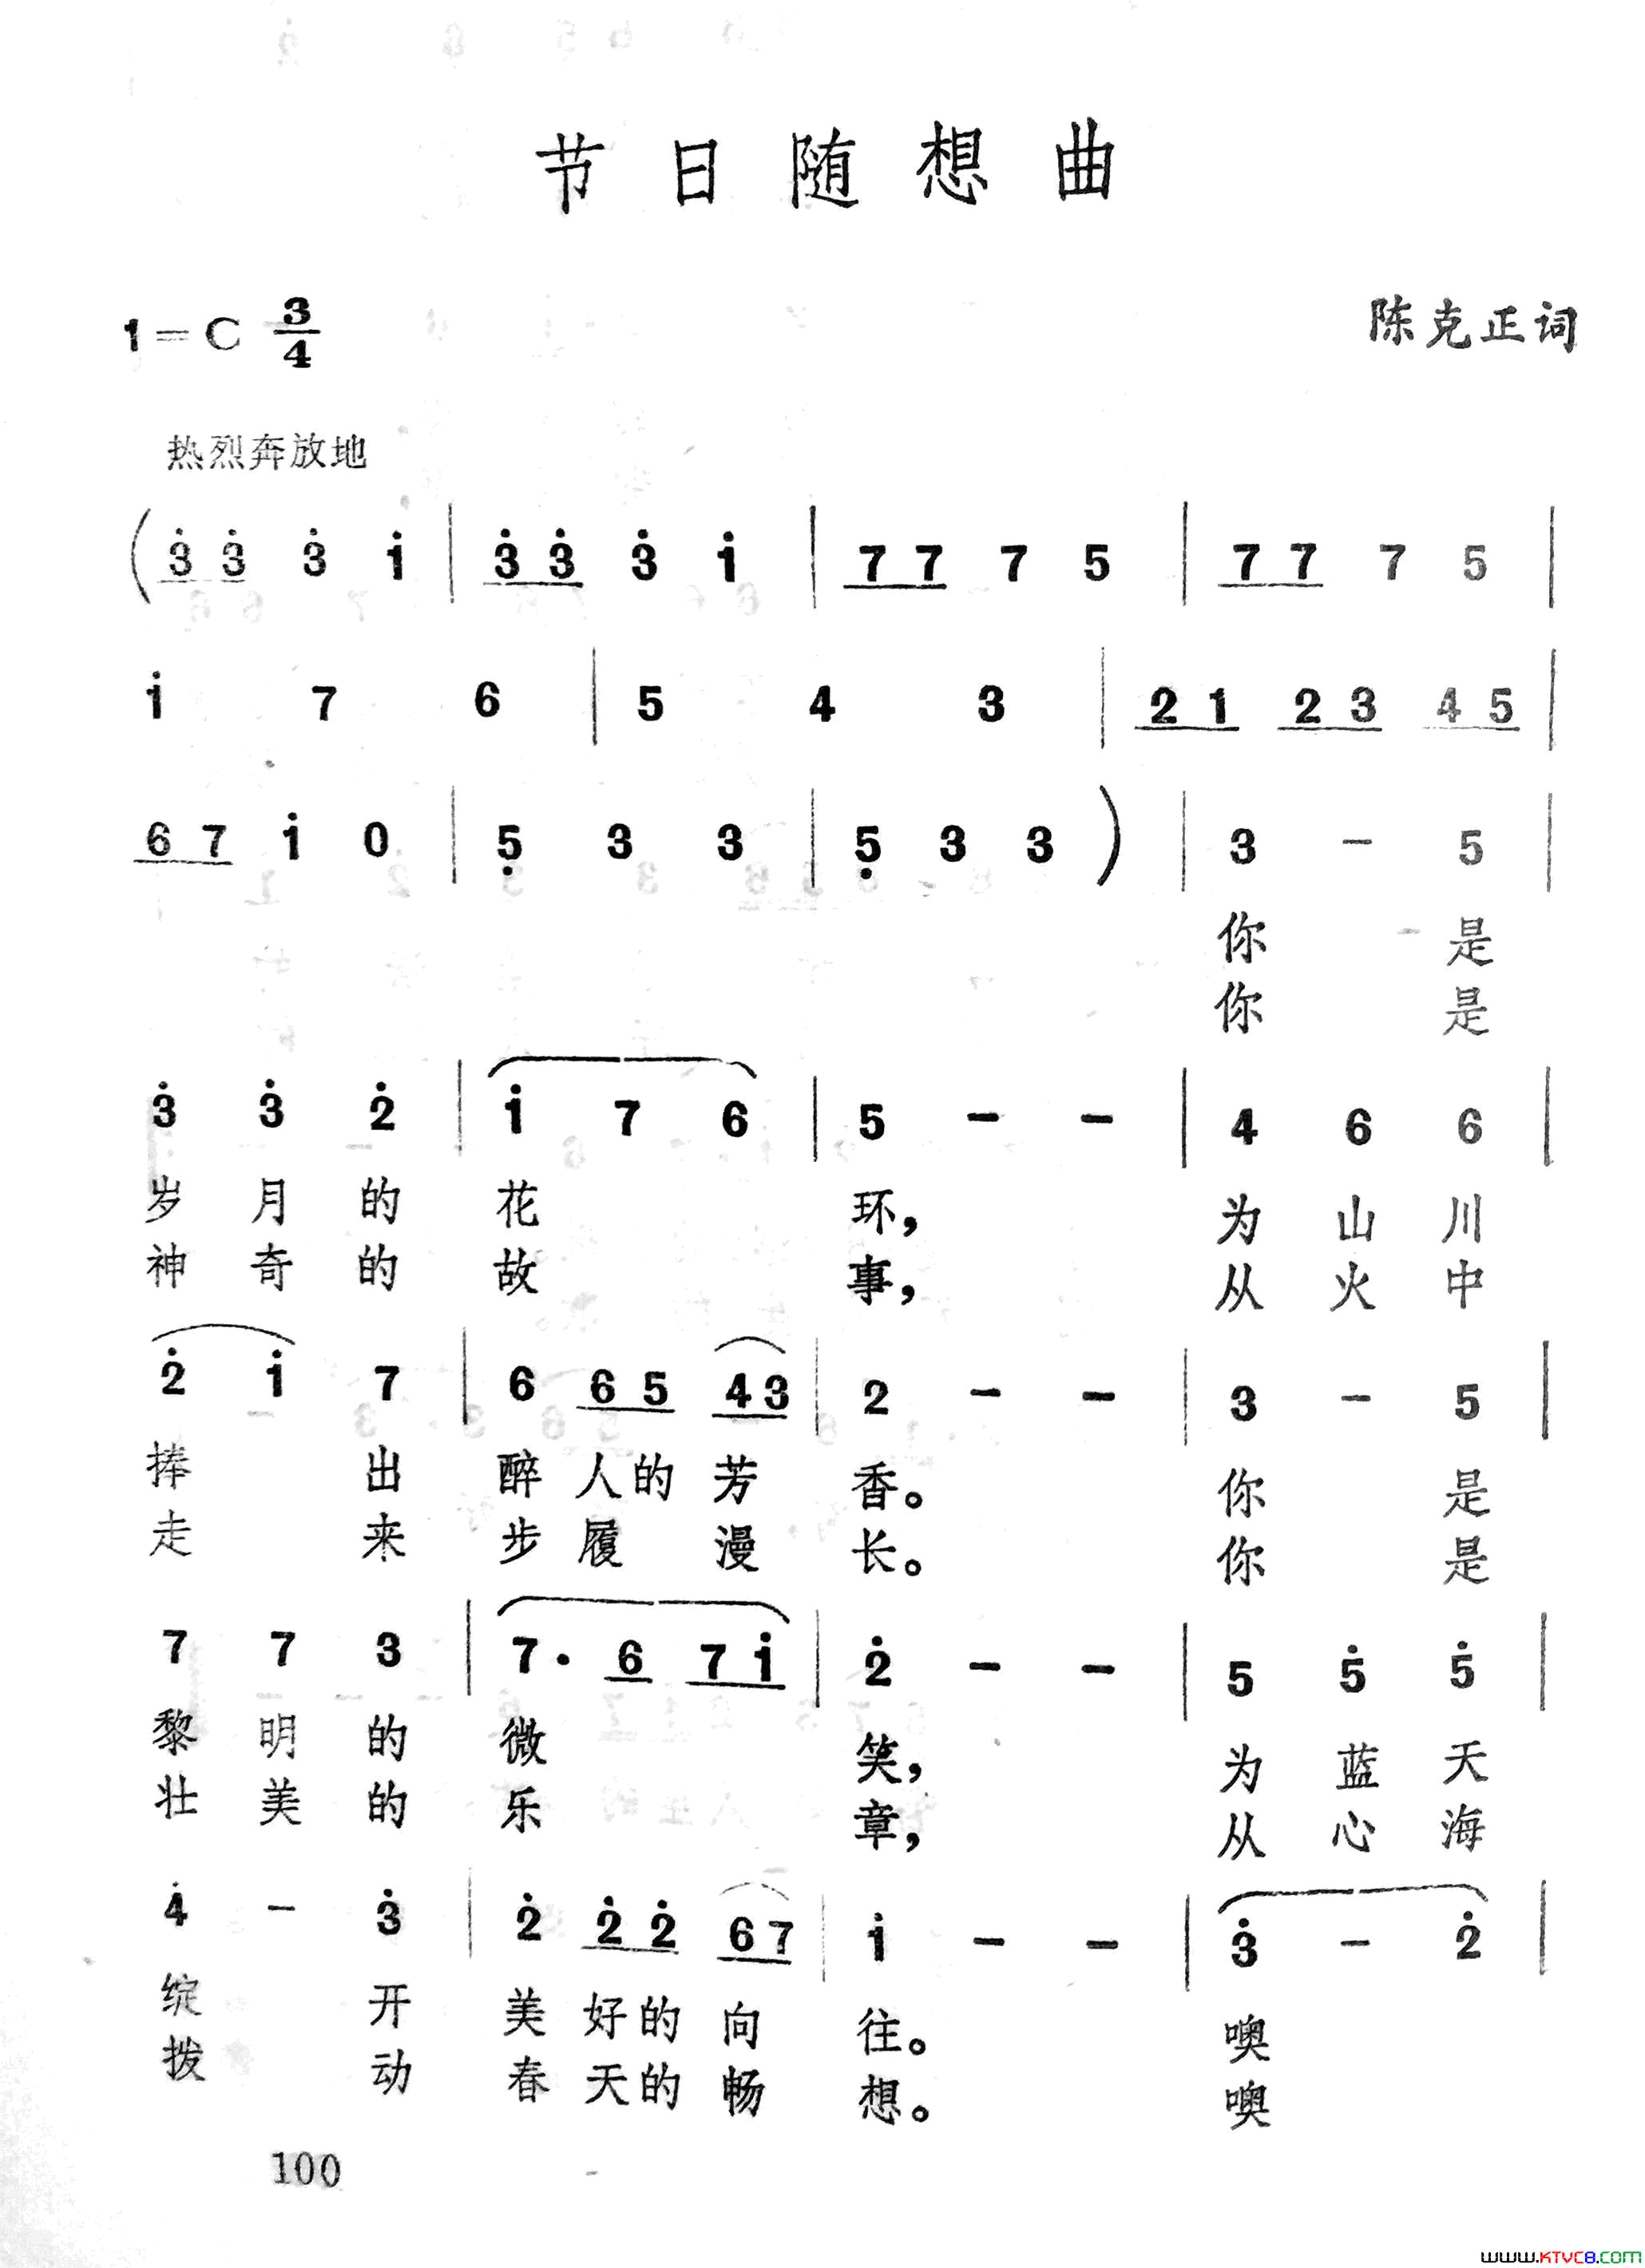 节日随想曲
1=C 3/4
陈克正词
热烈奔放地
(3̇3̇ 3̇ 1̇ | 3̇3̇ 3̇ 1̇ | 77 7 5 | 77 7 5 |
1̇ 7 6 | 5 4 3 | 21 23 45 |
67 1̇ 0 | 5̣ 3 3 | 5̣ 3 3) | 3 - 5 |
你 是
你 是
3̇ 3̇ 2̇ | 1̇ 7 6 | 5 - - | 4 6 6 |
岁 月 的 花 环, 为 山 川
神 奇 的 故 事, 从 火 中
2̇ 1̇ 7 | 6 65 43 | 2 - - | 3 - 5 |
捧 出 醉 人 的 芳 香。 你 是
走 来 步 履 漫 长。 你 是
7 7 3 | 7· 6 71̇ | 2̇ - - | 5 5̇ 5̇ |
黎 明 的 微 笑, 为 蓝 天
壮 美 的 乐 章, 从 心 海
4̇ - 3̇ | 2̇ 2̇2̇ 67 | 1̇ - - | 3̇ - 2̇ |
绽 开 美 好 的 向 往。 噢
拨 动 春 天 的 畅 想。 噢
100
www.KTVC8.com